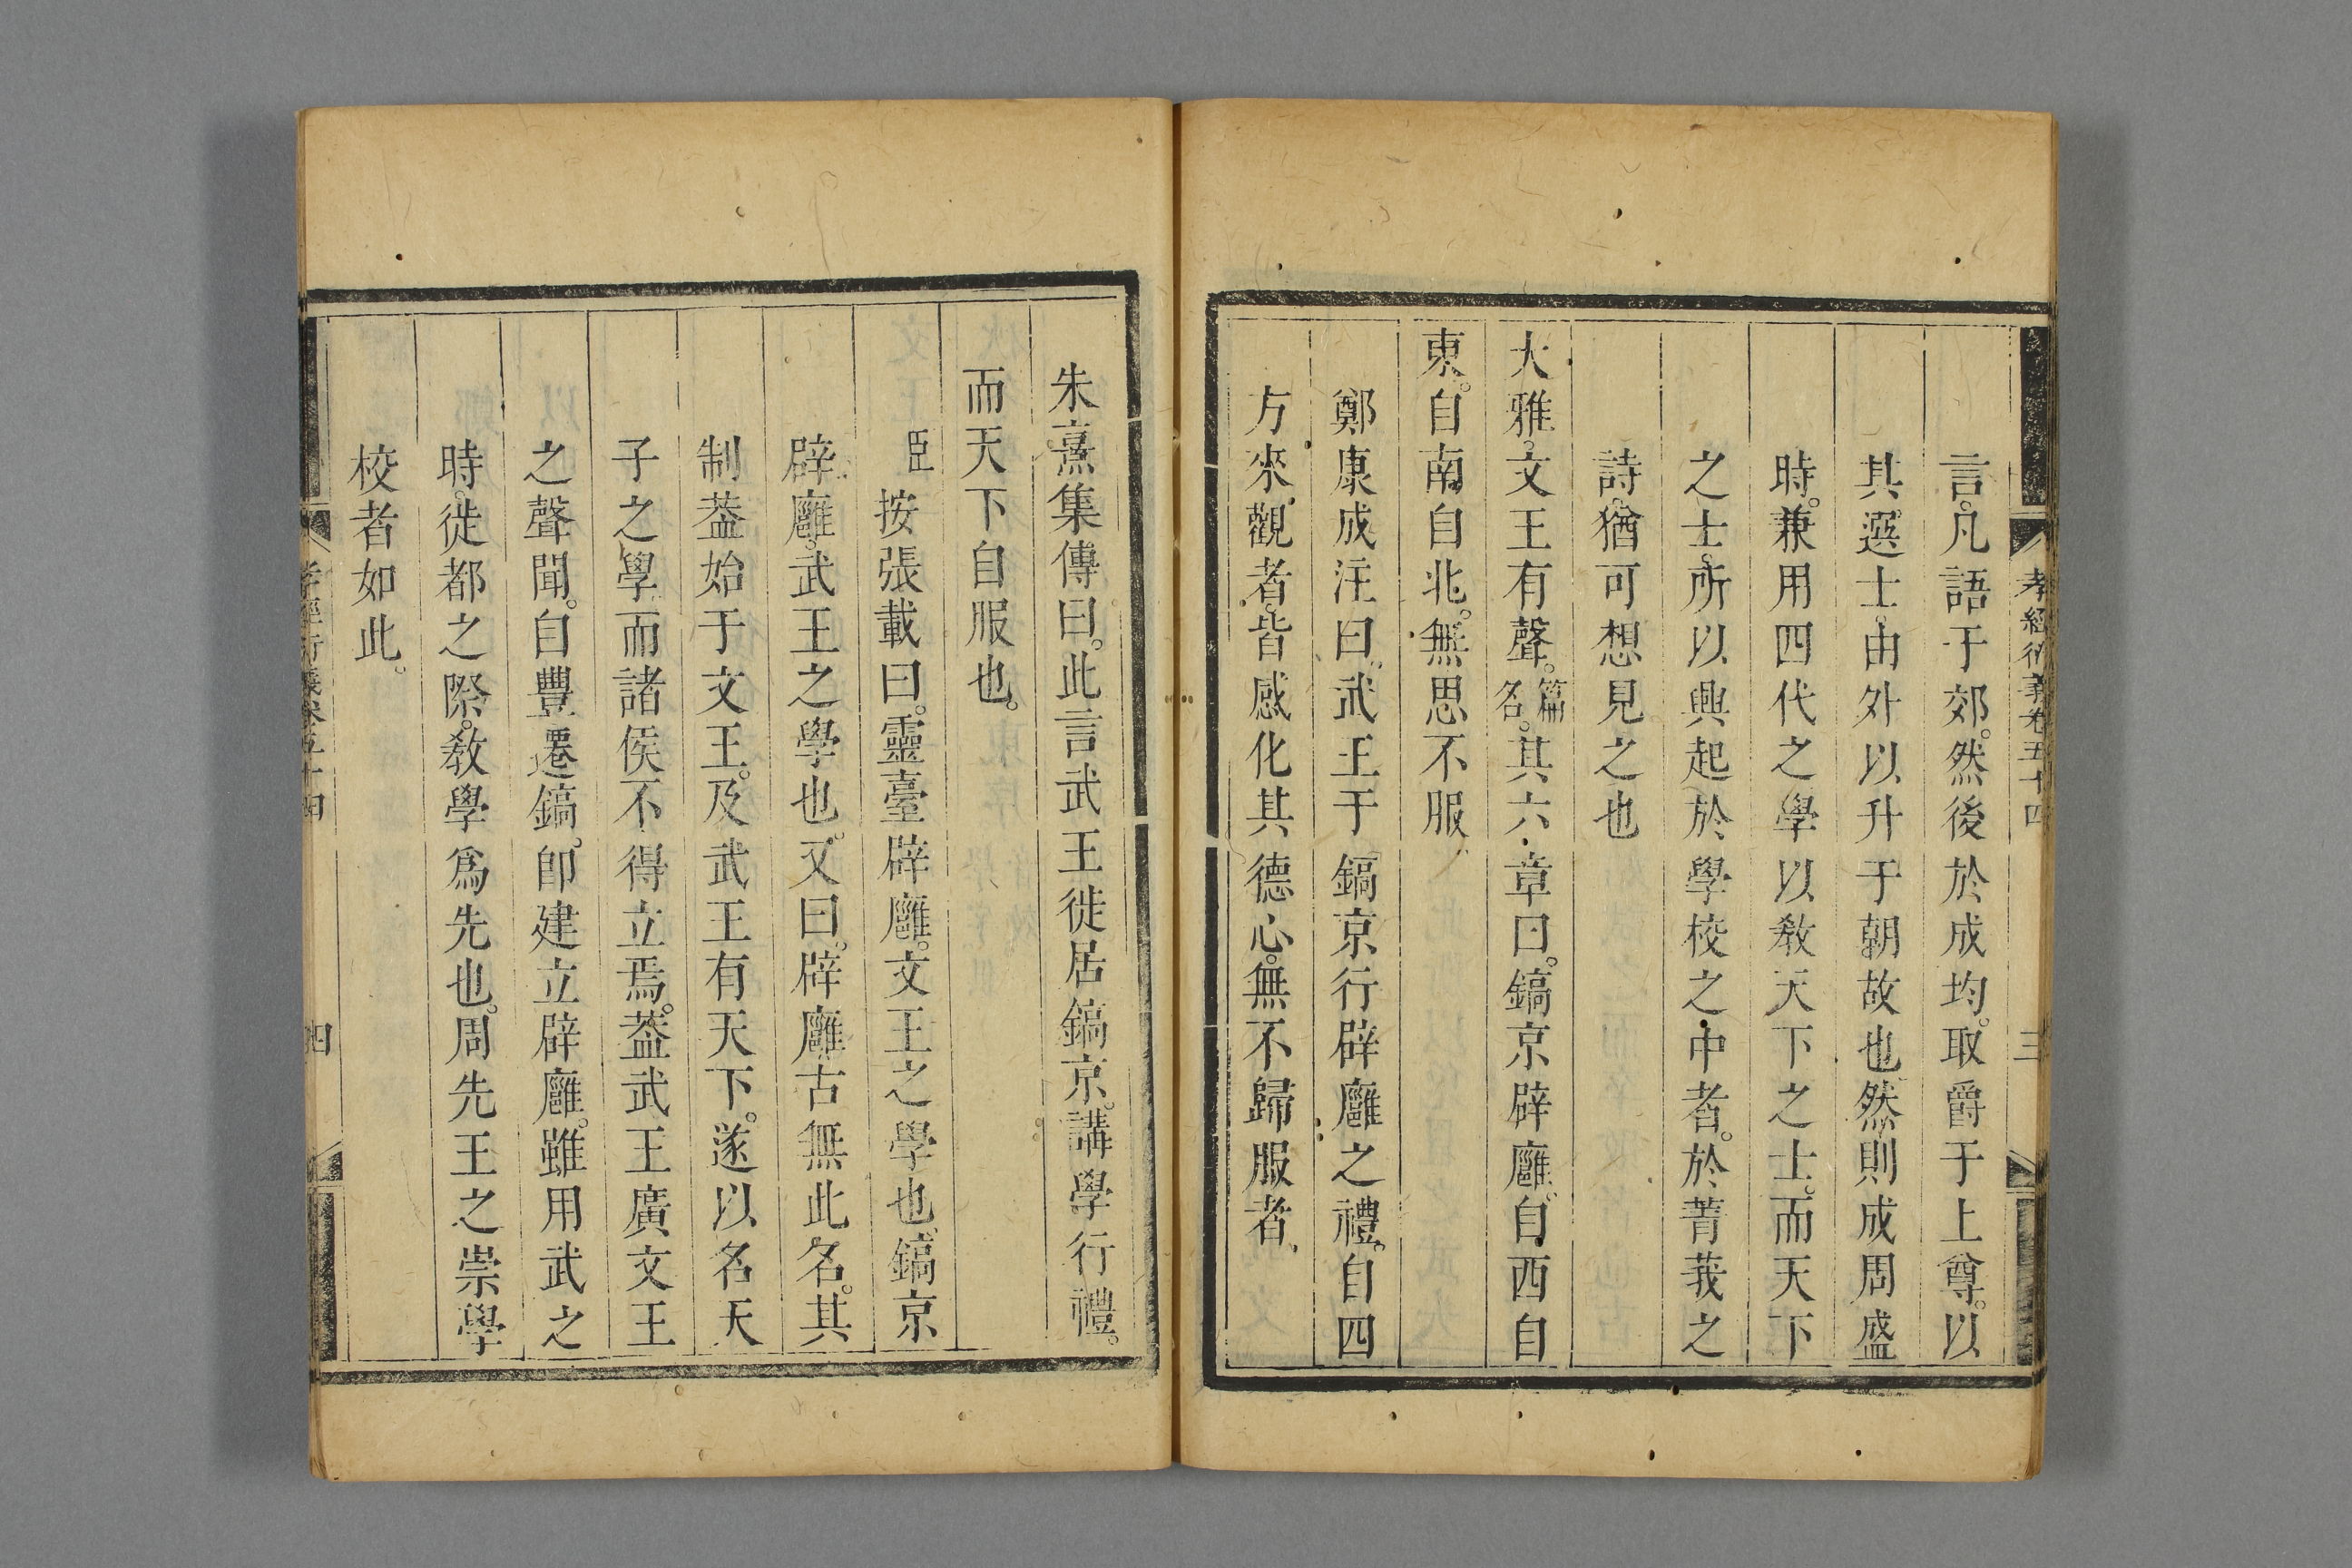 孝經衍義卷五十四
三
言。凡語于郊。然後於成均。取爵于上尊。以
其選士。由外以升于朝。故也。然則成周盛
時。兼用四代之學以敎天下之士。而天下
之士。所以興起於學校之中者。於菁莪之
詩。猶可想見之也
大雅。文王有聲。篇名。其六章曰。鎬京辟廱。自西自
東。自南自北。無思不服
鄭康成注曰。武王于鎬京行辟廱之禮。自四
方來觀者。皆感化其德心。無不歸服者
朱熹集傳曰。此言武王徙居鎬京。講學行禮。
而天下自服也。
臣按張載曰。靈臺辟廱。文王之學也。鎬京
辟廱。武王之學也。又曰。辟廱古無此名。其
制葢始于文王。及武王有天下。遂以名天
子之學。而諸侯不得立焉。葢武王廣文王
之聲聞。自豐遷鎬。卽建立辟廱。雖用武之
時。徙都之際。敎學爲先也。周先王之崇學
校者如此。
孝經衍義卷五十四
四